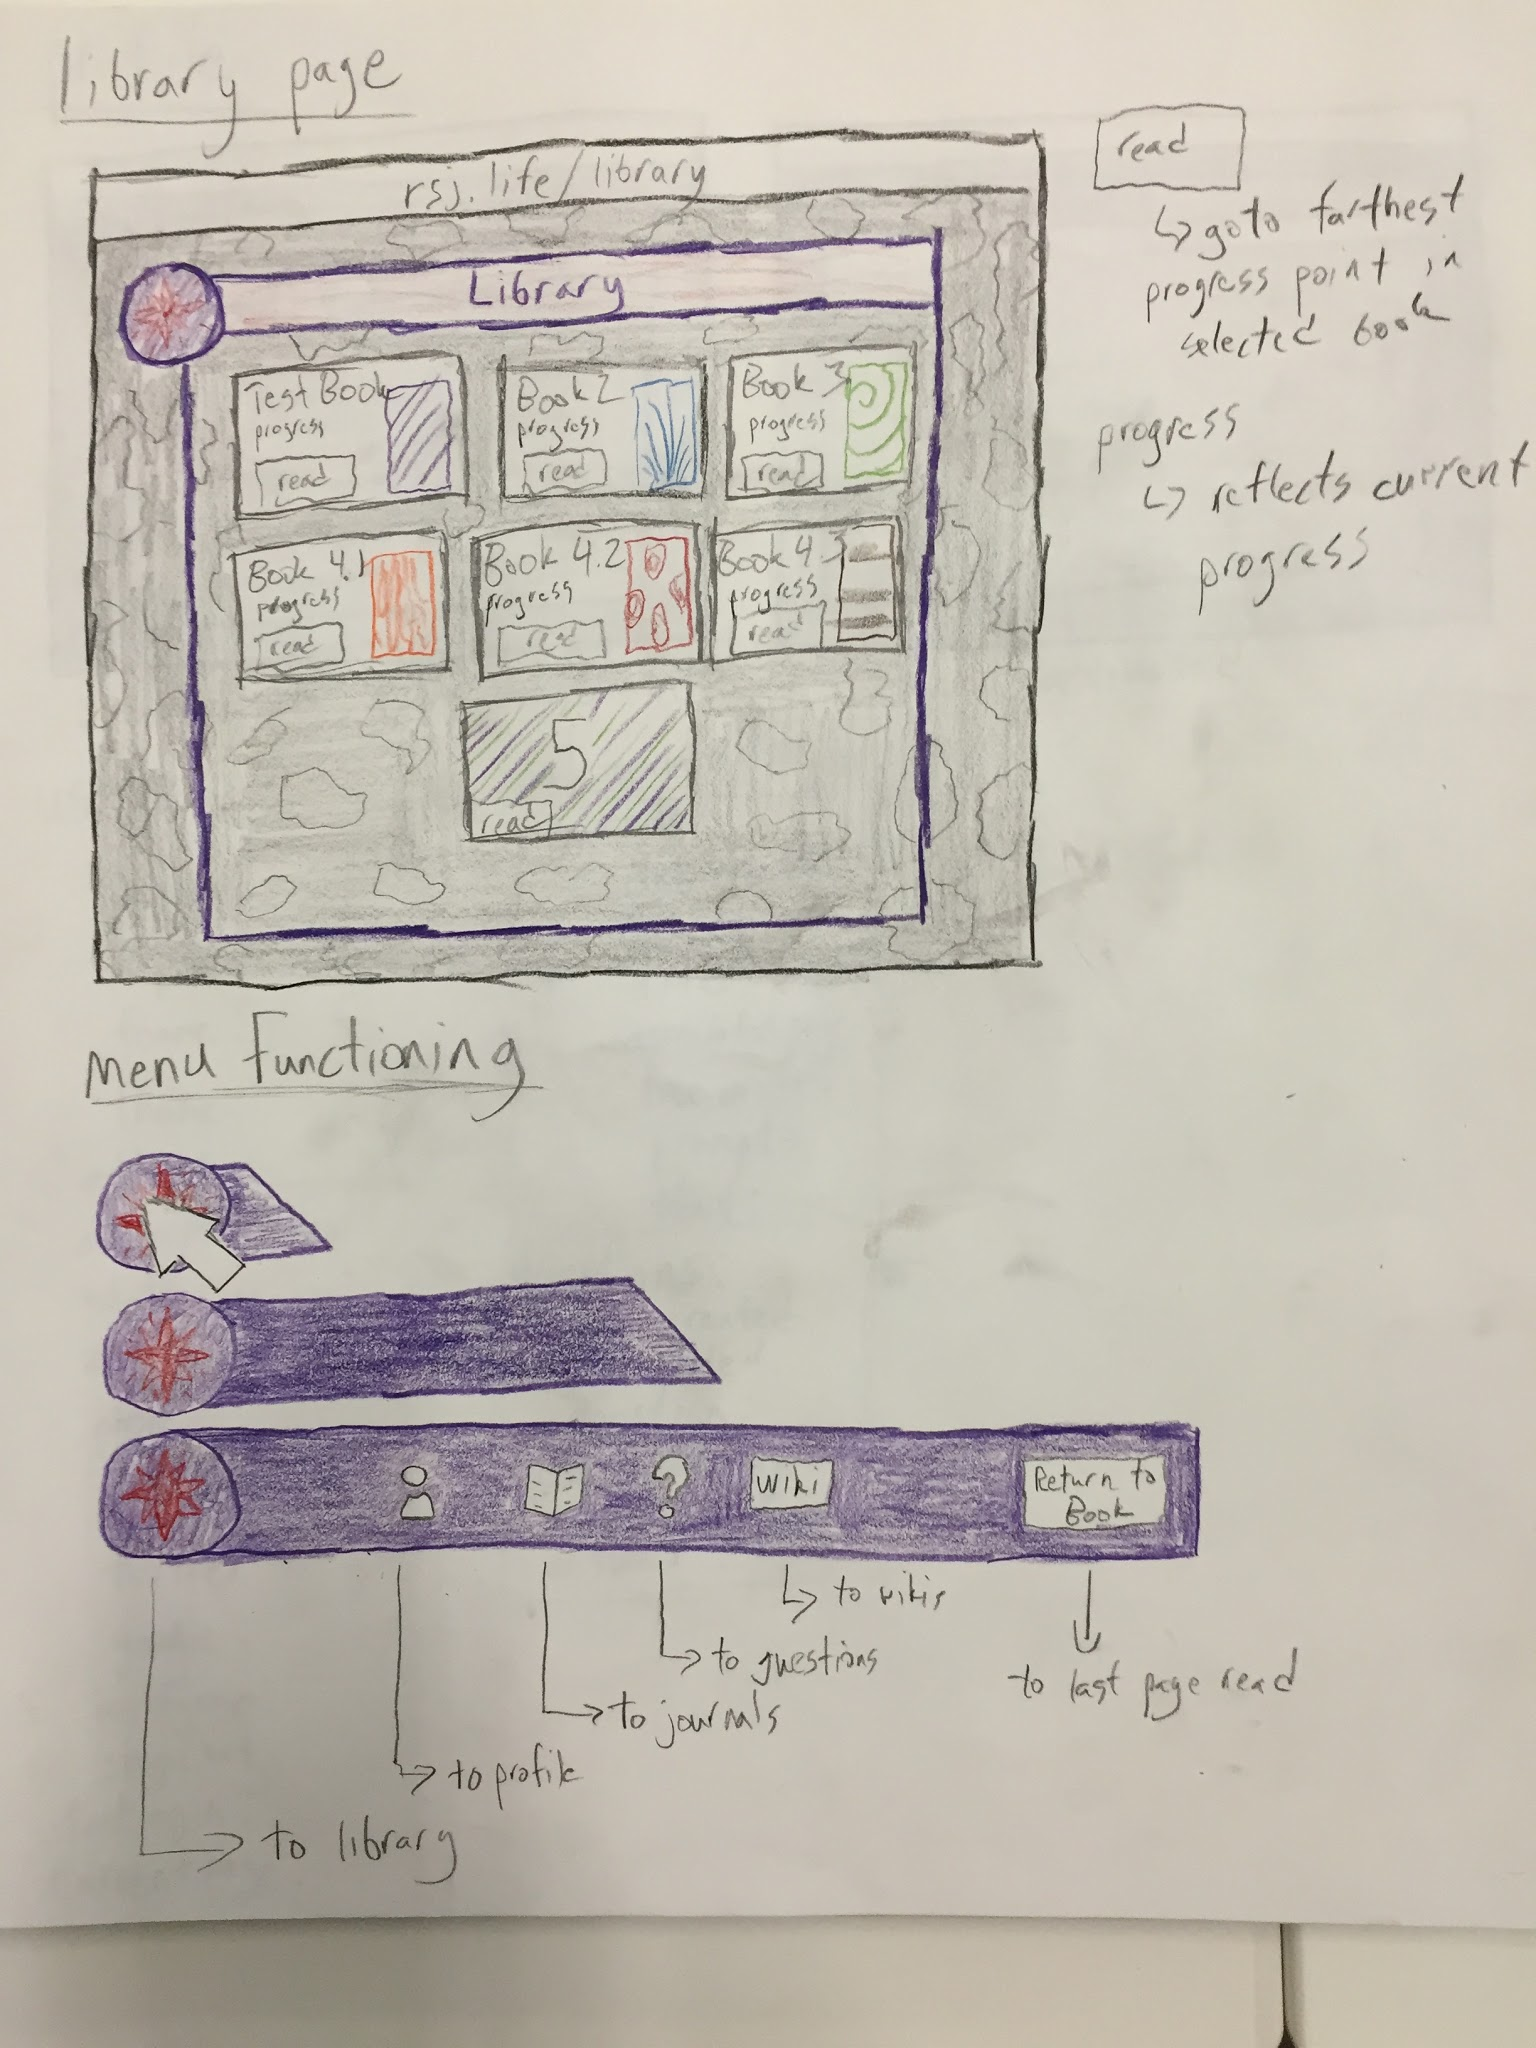 library page
rsj.life/library
Library
Test Book
progress
read
Book 2
progress
read
Book 3
progress
read
Book 4.1
progress
read
Book 4.2
progress
read
Book 4.3
progress
read
5
read
read
↳ goto farthest
progress point in
selected book
progress
↳ reflects current
progress
Menu Functioning
?
Wiki
Return to
Book
to wikis
to questions
to last page read
to journals
to profile
to library